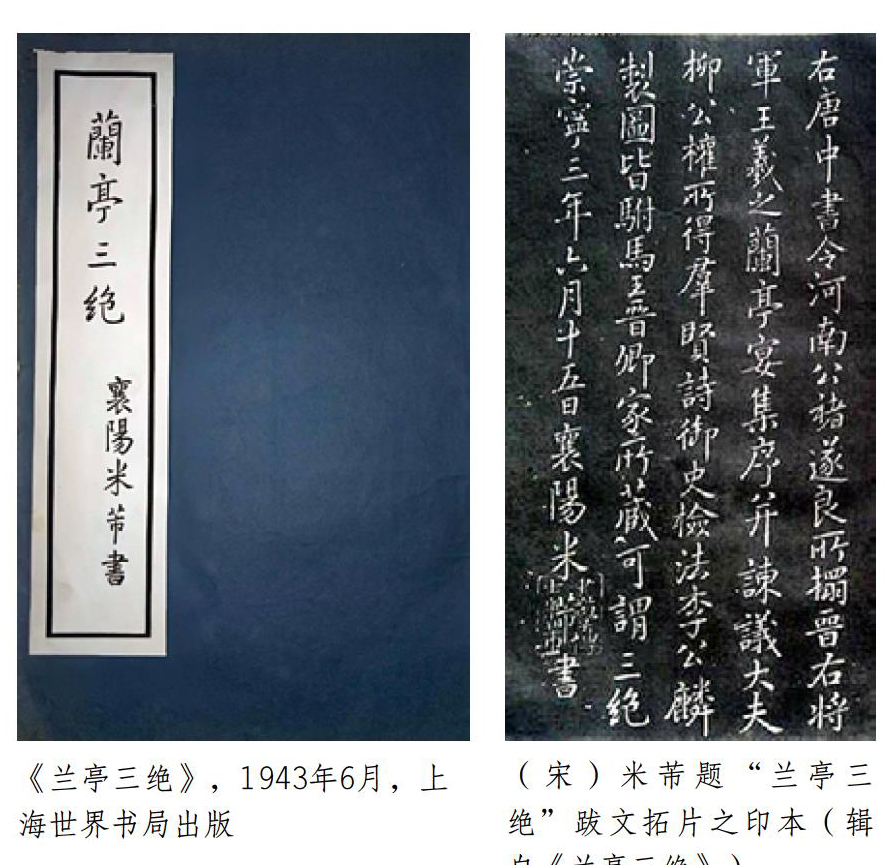 蘭亭三绝
襄陽米芾書
右唐中書令河南公褚遂良所搨晉右將
軍王羲之蘭亭宴集序并諫議大夫
柳公權所得羣賢詩御史檢法李公麟
製圖皆駙馬王晉卿家所蔵可謂三绝
崇寧三年六月十五日襄陽米芾書
《兰亭三绝》，1943年6月，上
海世界书局出版
（宋）米芾题“兰亭三
绝”跋文拓片之印本（辑
自《兰亭三绝》）